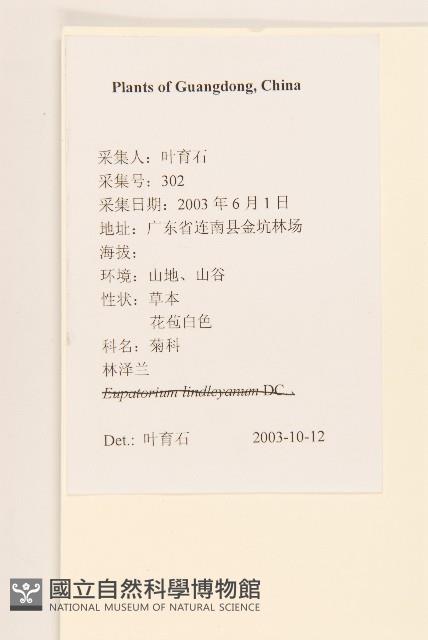 Plants of Guangdong, China
采集人：叶育石
采集号：302
采集日期：2003 年 6 月 1 日
地址：广东省连南县金坑林场
海拔：
环境：山地、山谷
性状：草本
花苞白色
科名：菊科
林泽兰
Eupatorium lindleyanum DC.
Det.: 叶育石 2003-10-12
國立自然科學博物館
NATIONAL MUSEUM OF NATURAL SCIENCE